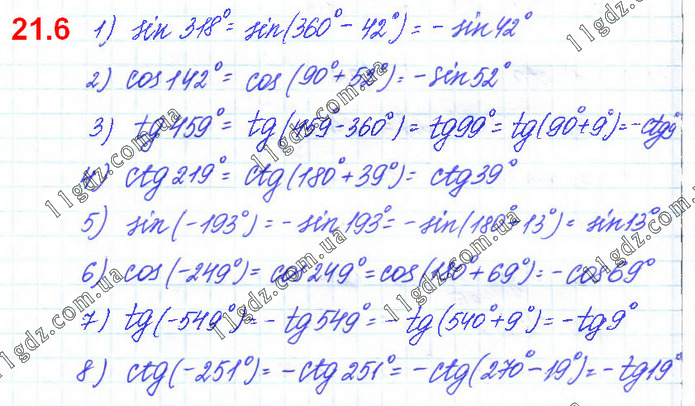 21.6 1) sin 318° = sin(360° - 42°) = - sin 42°
2) cos 142° = cos (90° + 52°) = - sin 52°
3) tg 459° = tg (459 - 360°) = tg 99° = tg (90° + 9°) = - ctg 9°
4) ctg 219° = ctg (180° + 39°) = ctg 39°
5) sin (-193°) = - sin 193° = - sin (180° + 13°) = sin 13°
6) cos (-249°) = cos 249° = cos (180° + 69°) = - cos 69°
7) tg (-549°) = - tg 549° = - tg (540° + 9°) = - tg 9°
8) ctg (-251°) = - ctg 251° = - ctg (270° - 19°) = - tg 19°
11gdz.com.ua
11gdz.com.ua
11gdz.com.ua
11gdz.com.ua
11gdz.com.ua
11gdz.com.ua